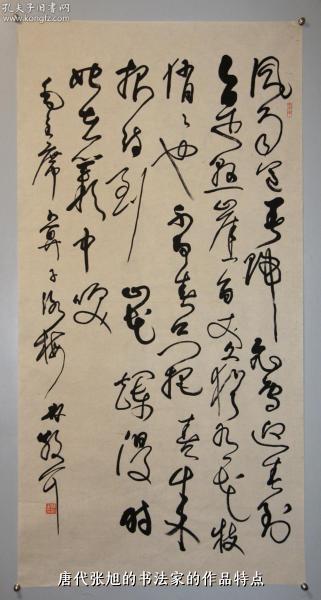 孔夫子旧书网
www.kongfz.com
風雨送春歸飛雪迎春到
已是懸崖百丈冰猶有花枝
俏俏也不争春只把春来
报待到山花爛漫时
她在叢中笑
毛主席卜算子咏梅
唐代张旭的书法家的作品特点